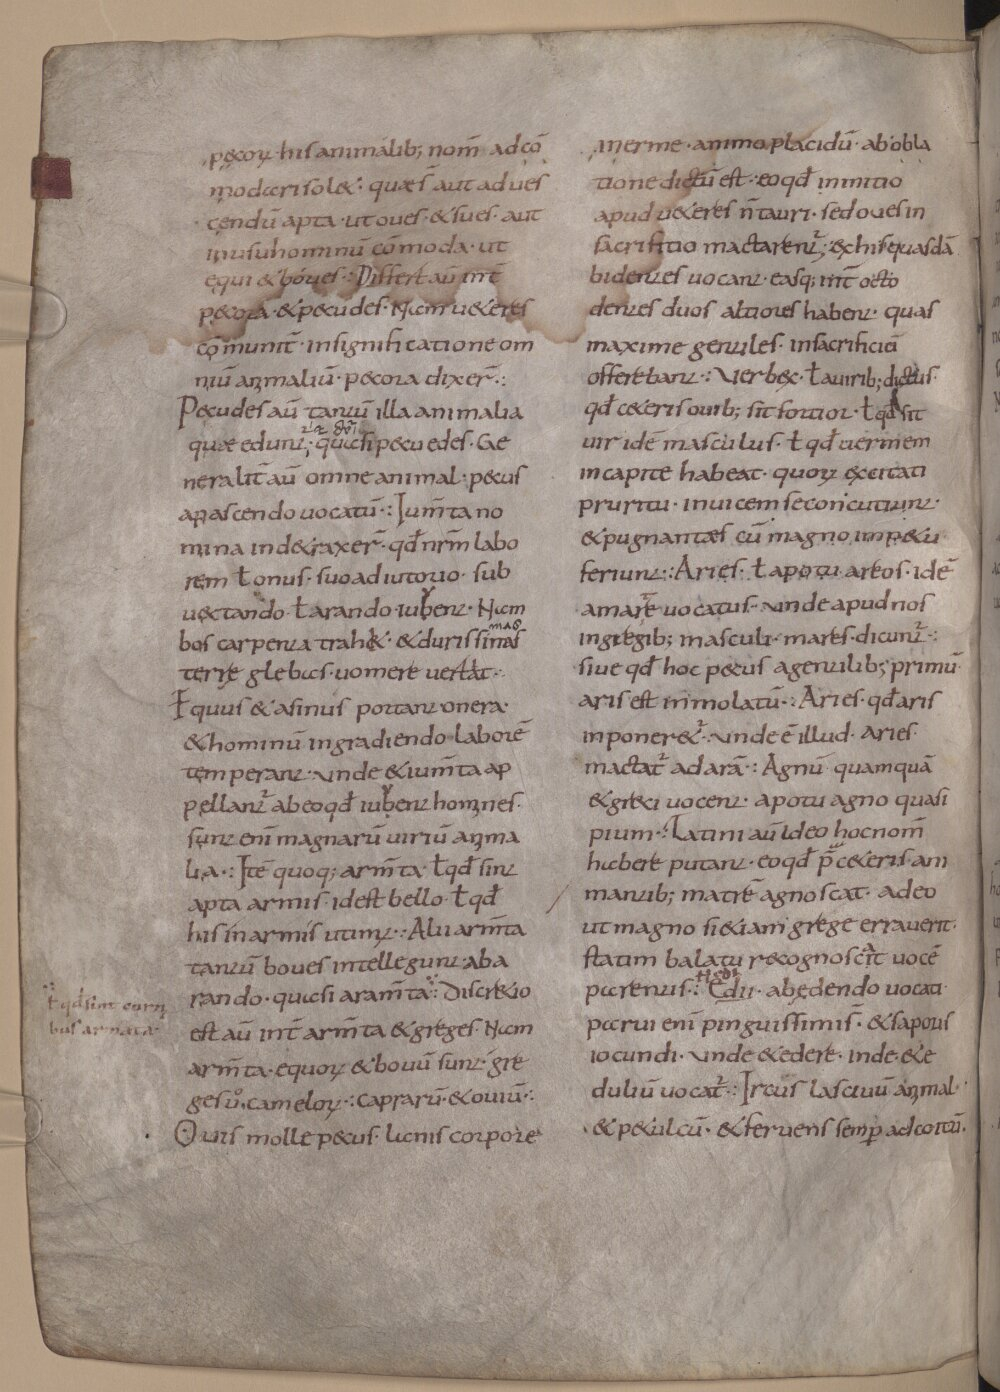 pecoꝝ his animalib; nom̄ ad cō
modacri solet· quaesˉ aut ad ues
cendū apta· ut oues· & sues· aut
in usu hominū cōmoda· ut
equi & boues·: Differt aū int̄
pecora· & pecudes· Nam ueteres
cōmunit̄· in significatione om
niū animaliū· pecora dixer̄·:
Pecudes aū tantū illa animalia
quae eduntˉ; quasi pecu edes· Ge
neralit̄ aū omne animal· pecus
a pascendo uocatū·: Ium̄ta no
mina inde traxer̄· qd̄ nr̄m labo
rem ł onus· suo adiutorio· sub
uectando· ł arando· iubent· Nam
bos carpenta trahit· & durissimas
mas
terre glebas· uomere uertat·:
Equus & asinus portant onera·
& hominū ingradiendo laborē
temperant· unde & ium̄ta ap
pellantˉ ab eo qd̄ iubent homines·
sunt enī magnarū uiriū anima
lia·: Itē quoq; arm̄ta· ł qd̄ sint
apta armis· id est bello· ł qd̄
his in armis utimꝝ·: Alii arm̄ta
tantū boues intellegunt· ab a
rando· quasi aram̄ta·: Discretio
est aū int̄ arm̄ta & greges· Nam
arm̄ta· equoꝝ & bouū sunt· gre
ges ů· cameloꝝ·: caprarū· & ouiū·:
Ouis molle pecus· lanis corpore
ł qd sint corni
bus armata·
inerme· animo placidū· ab obla
tione dictū est· eo qd̄ in initio
apud ueteres n̄ tauri· sed oues in
sacrifitio mactarentˉ; ex his quasdā
bidentes uocant· easq; int̄ octo
dentes duos altiores habent· quas
maxime gentiles· in sacrificiis
offerebant·: Ueruex· ł a uirib; dictus·
qd̄ ceteris ouib; sit fortior· ł qd̄ sit
uir idē masculus· ł qd̄ uermem
in capite habeat· quoꝝ excitati
pruritu· inuicem se concutiunt·
& pugnantes cū magno impetu
feriunt·: Aries· ł apotu areos· idē
a marte uocatus· unde apud nos
in gregib; masculi· mares· dicuntˉ·:
siue qd̄ hoc pecus a gentilib; primū
aris est inmolatū·: Aries· qd̄ aris
inponeretˉ· unde ē illud· aries·
mactatˉ ad arā·: Agnū quamquā
& greci uocent· apotu agno quasi
pium·: Latini aū ideo hoc nom̄
habere putant· eo qd̄ p̄ ceteris ani
mantib; matrē agnoscat· adeo
ut magno si etiam grege errauerit·
statim balatu recognoscat uocē
parentis·: Edii· ab edendo uocati
parui enī pinguissimī· & saporis
iocundi· unde & edere· inde & e
duliū uocatˉ·: Ircus lasciuū animal·
& petulcū· & feruens semꝑ ad coitū·